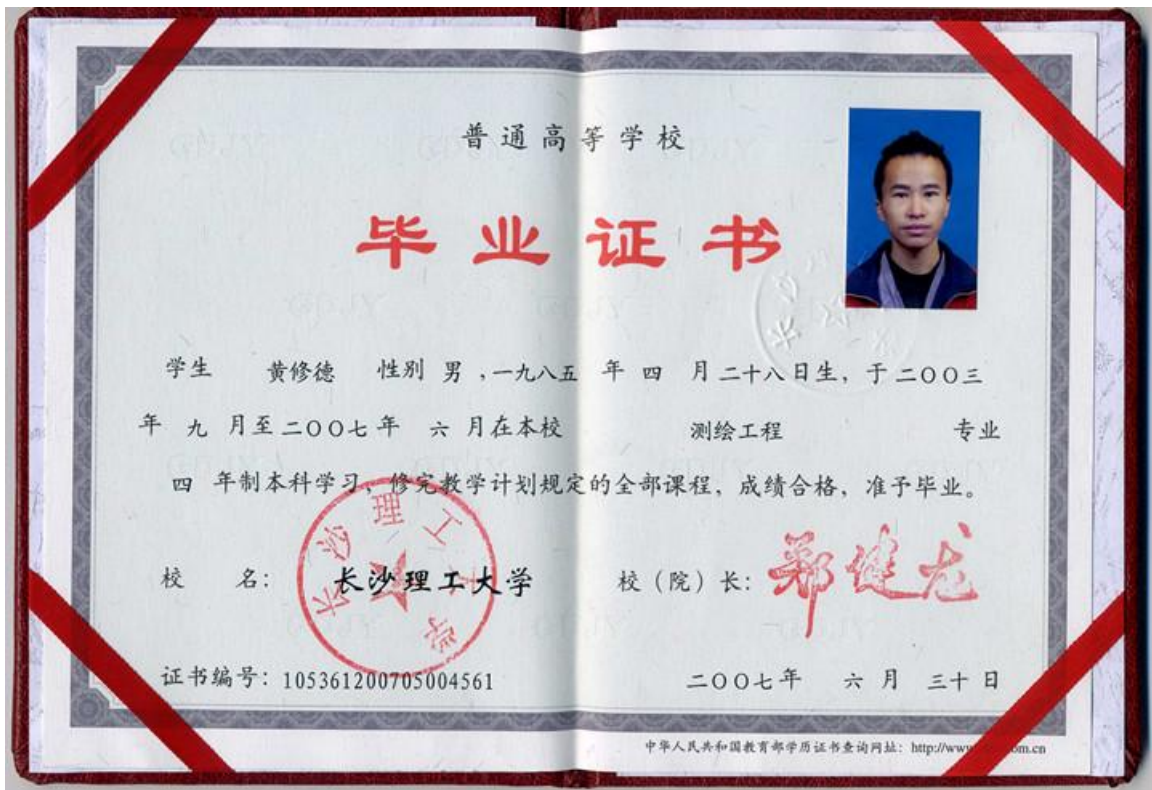 普通高等学校
毕业证书
学生 黄修德 性别 男 ,一九八五 年 四 月 二十八日生, 于 二〇〇三
年 九 月至 二〇〇七 年 六 月在本校 测绘工程 专业
四 年制本科学习, 修完教学计划规定的全部课程, 成绩合格, 准予毕业。
校 名: 长沙理工大学 校(院)长: 郑健龙
长沙理工大学
证书编号: 105361200705004561 二〇〇七年 六 月 三十 日
中华人民共和国教育部学历证书查询网址: http://www om.cn